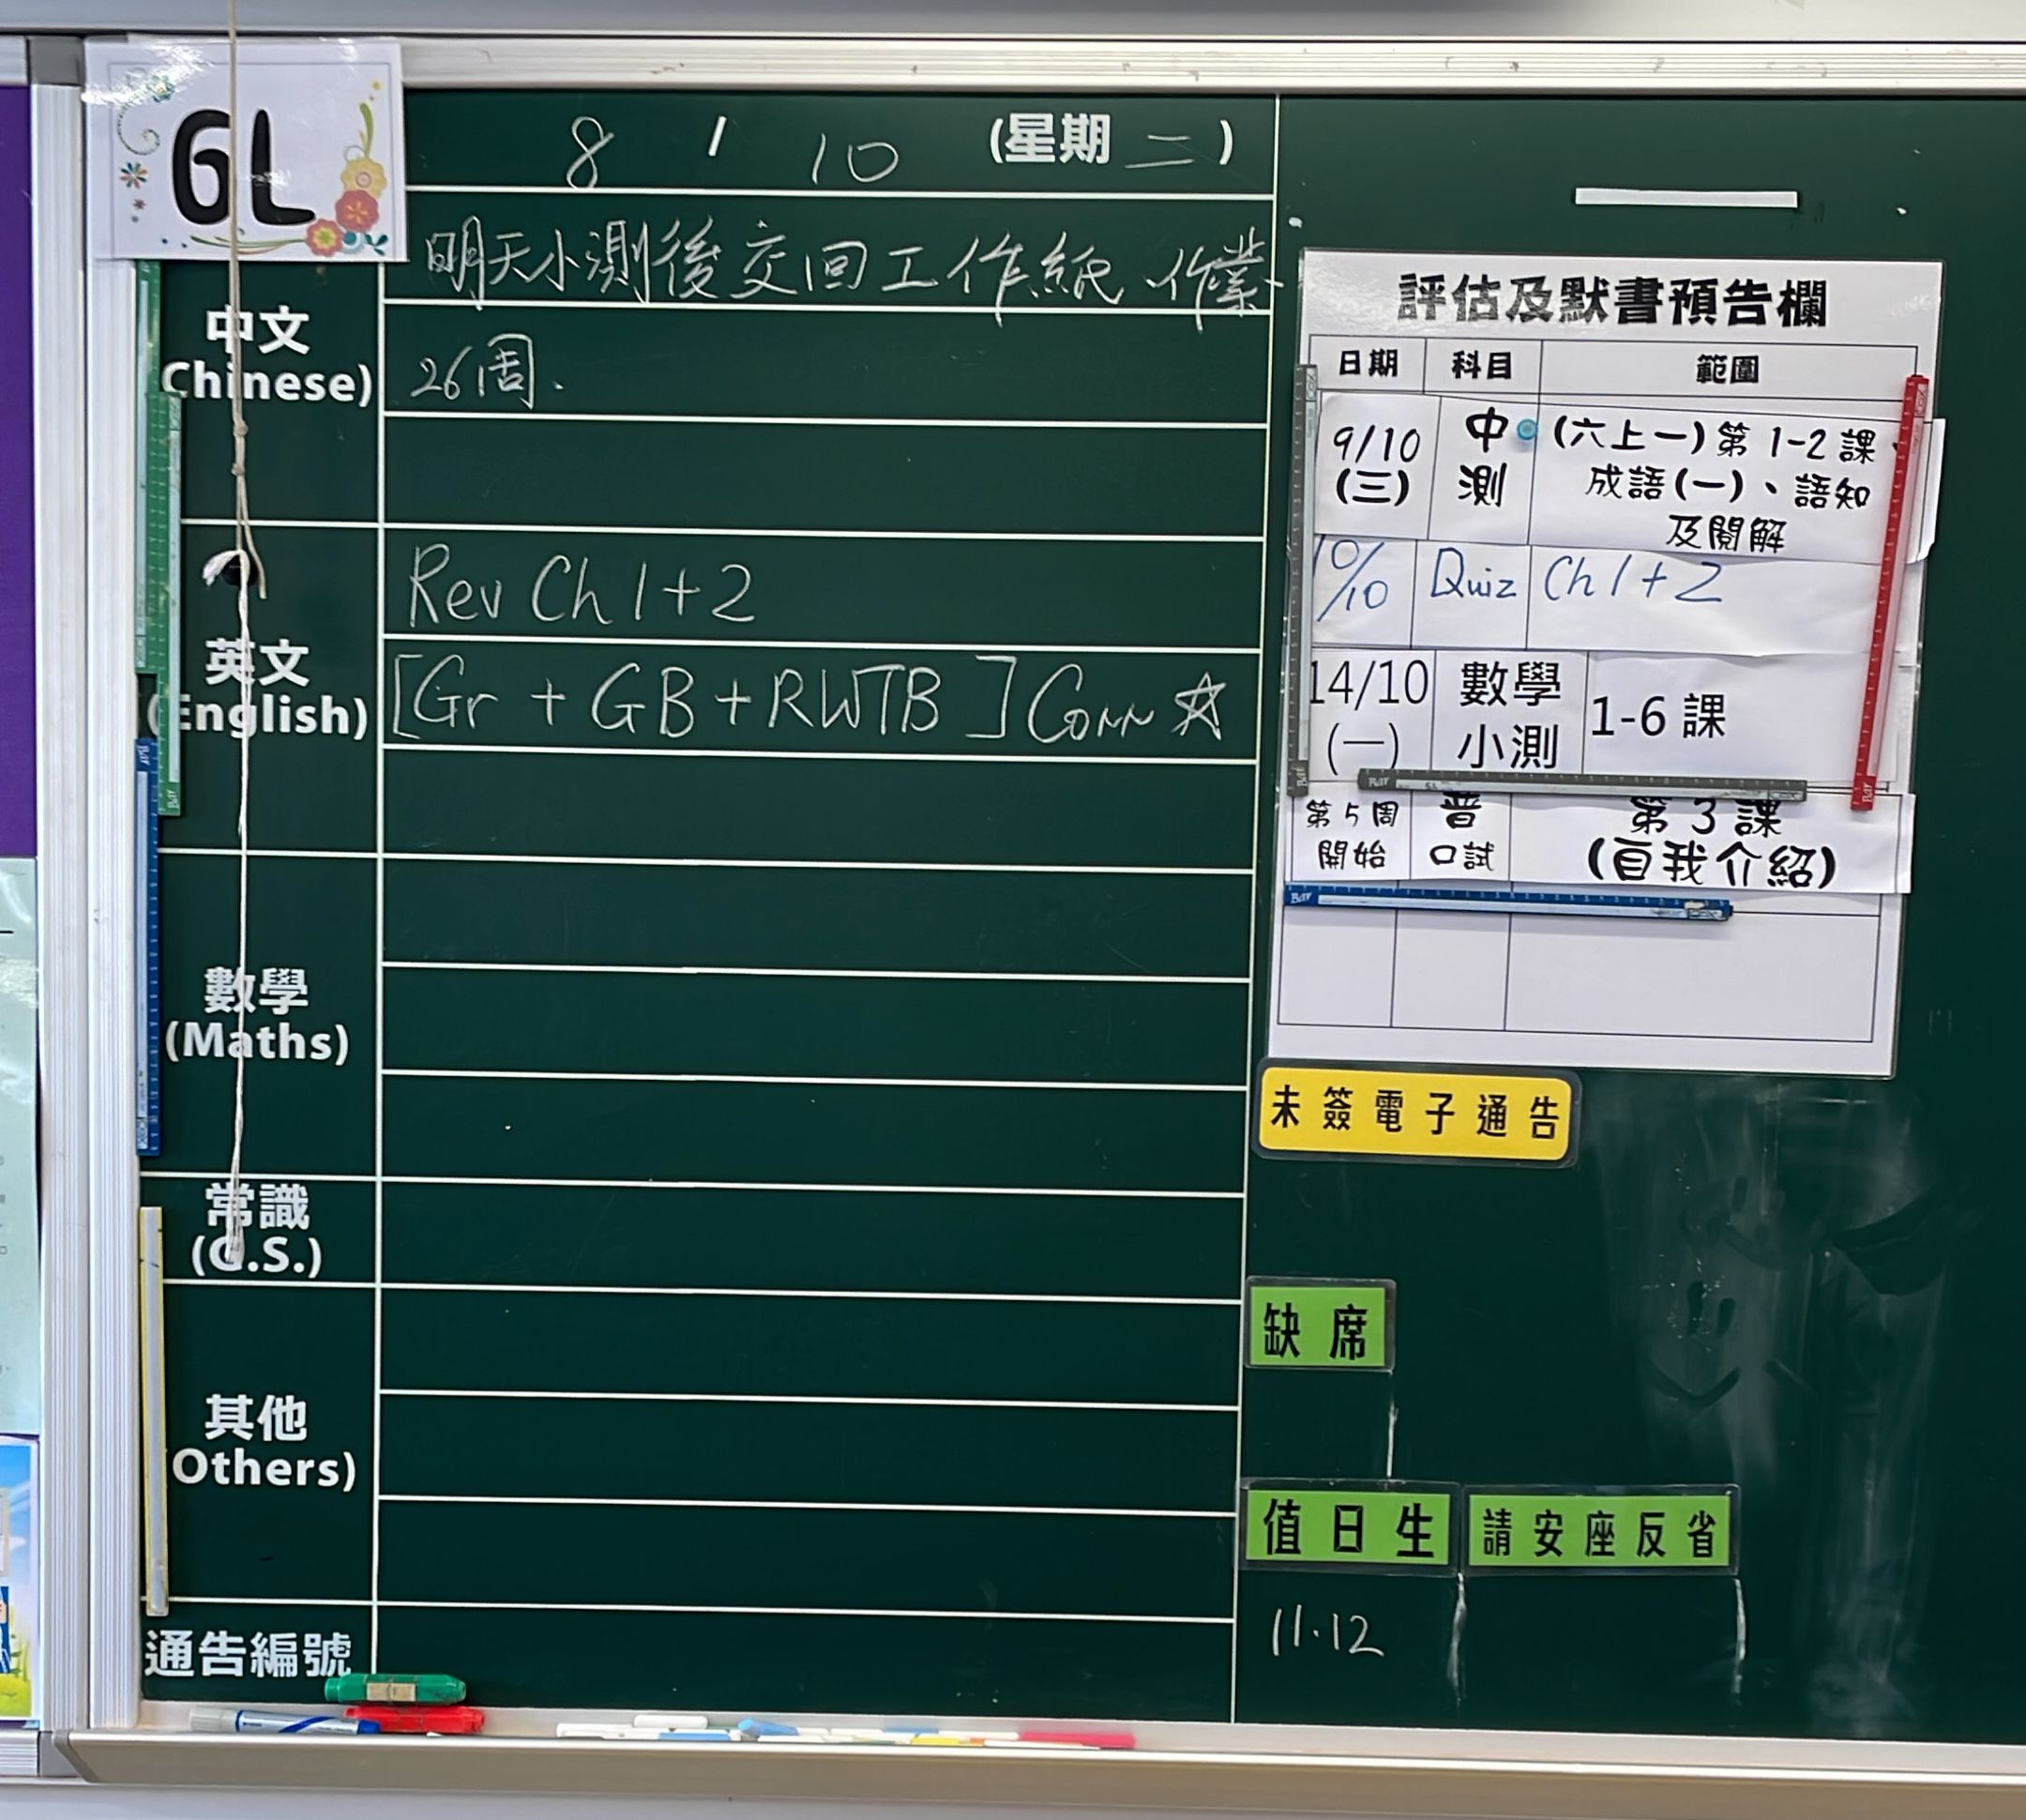 6L
8 / 10 (星期二)
中文
(Chinese)
明天小測後交回工作紙、作業、
26周.
英文
(English)
Rev Ch 1+2
[Gr + GB + RWTB] Corr ☆
數學
(Maths)
常識
(G.S.)
其他
(Others)
通告編號
評估及默書預告欄
日期 科目 範圍
9/10 (三) 中測 (六上一)第1-2課、
成語(一)、語知
及閱解
10/10 Quiz Ch 1+2
14/10 (一) 數學小測 1-6課
第5周開始 普口試 第3課
(自我介紹)
未簽電子通告
缺席
值日生 請安座反省
11.12